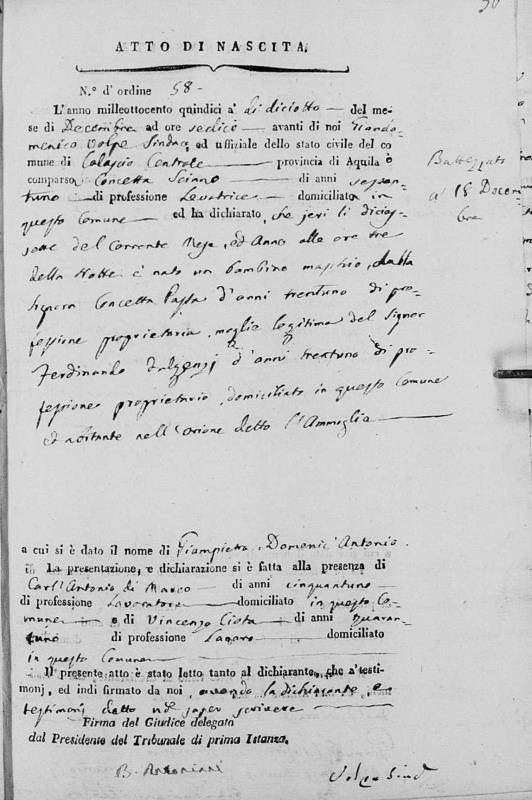 30
ATTO DI NASCITA.
N.º d'ordine 58 -
L'anno milleottocento quindici a' li diciotto — del me-
se di Decembre ad ore sedici — avanti di noi Giando-
menico Volpe Sindaco, ed uffiziale dello stato civile del co
mune di Calascio Centrale — provincia di Aquila è
comparso Concetta — di anni settan-
tuno — di professione Levatrice domiciliato in
questo Comune — ed ha dichiarato, che jeri li dicias-
sette del Corrente Mese, ed Anno alle ore tre
della Notte è nato un bambino maschio, dalla
Signora Concetta d'anni trentuno di pro-
fessione proprietaria, moglie legitima del Signor
Ferdinando d'anni trentuno di pro-
fessione proprietario, domiciliato in questo Comune
ed abitante nell'orione detto
Battezzato
a' 18 Decem-
bre
a cui si è dato il nome di Giampietro, Domenic'Antonio.
La presentazione, e dichiarazione si è fatta alla presenza di
Carl'Antonio di Marco — di anni cinquantuno —
di professione Lavoratore — domiciliato in questo Co-
mune — e di Vincenzo — di anni quaran-
tuno di professione domiciliato
in questo Comune —
Il presente atto è stato letto tanto al dichiarante, che a'testi-
monj, ed indi firmato da noi, avendo la dichiarante, e
testimonj detto non saper scrivere —
Firma del Giudice delegato
dal Presidente del Tribunale di prima Istanza.
B. Antonini
Volpe Sind